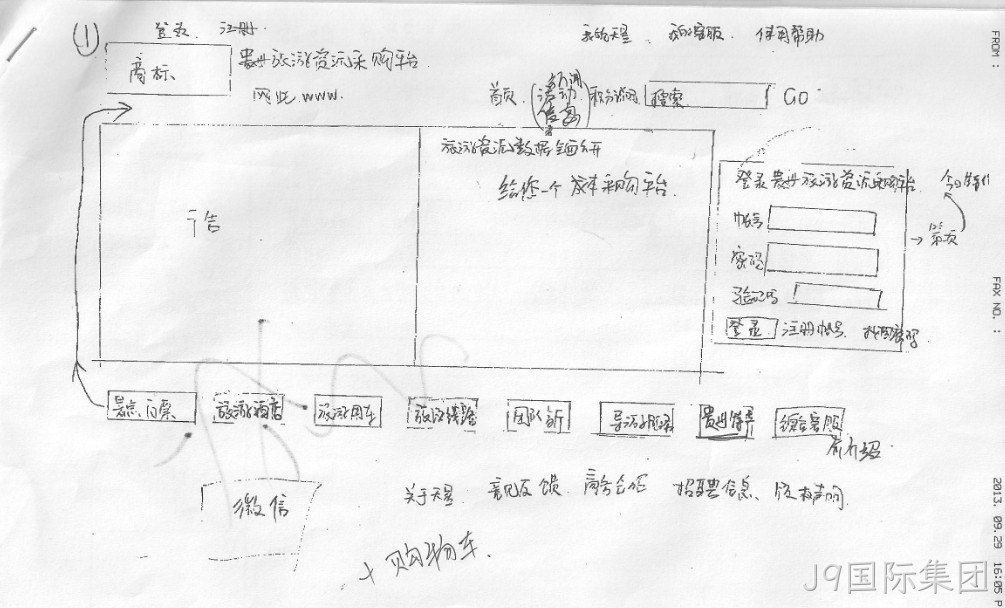 ①
登录、注册
我的天星、在线客服、使用帮助
商标
贵州旅游资源采购平台
网址 www.
首页
新闻
活动
搜索
GO
旅游资源数据全面公开
给您一个成本采购平台
广告
登录贵州旅游资源采购平台
帐号
密码
验证码
登录 注册帐号 找回密码
景点门票
旅游酒店
旅游用车
旅游线路
团队
导游服务
贵州特产
综合客服
有介绍
微信
关于天星 意见反馈 商务合作 招聘信息、版权声明
+购物车
FROM :
FAX NO. :
2013. 09.29 16:05 P
J9国际集团